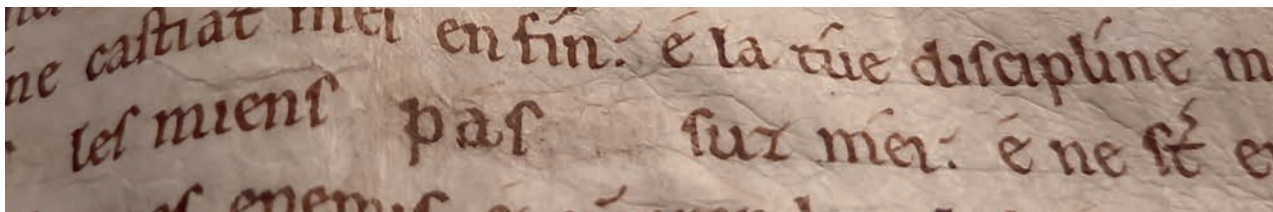 ne caſtiat mei en fín: é la túe diſcipline m
leſ mienſ paſ ſur méi: é ne ſt́ e